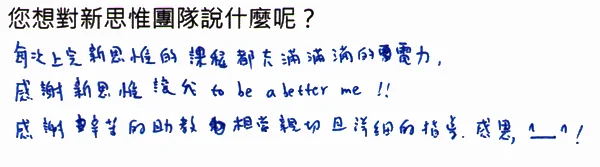 您想對新思惟團隊說什麼呢？
每次上完新思惟的課程都充滿滿滿的電力，
感謝新思惟讓我 to be a better me !!
感謝辛苦的助教相當親切且詳細的指導. 感恩, ^__^!